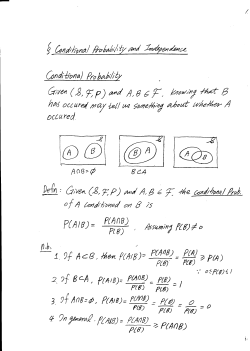 § Conditional Probability and Independence
Conditional Probability
Given (Ω, F, P) and A, B ∈ F, knowing that B
has occured may tell us something about whether A
occured
Ω Ω Ω
A B B A A B
A∩B=∅ B⊂A
Defn: Given (Ω, F, P) and A, B ∈ F, the conditional Prob.
of A conditioned on B is
P(A|B) = P(A∩B)/P(B), Assuming P(B) ≠ 0
n.b.
1. If A⊂B, then P(A|B) = P(A∩B)/P(B) = P(A)/P(B) ≥ P(A)
∵ 0≤P(B)≤1
2. If B⊂A, P(A|B) = P(A∩B)/P(B) = P(B)/P(B) = 1
3. If A∩B=∅, P(A|B) = P(A∩B)/P(B) = P(∅)/P(B) = 0/P(B) = 0
4. In general: P(A|B) = P(A∩B)/P(B) ≥ P(A∩B)